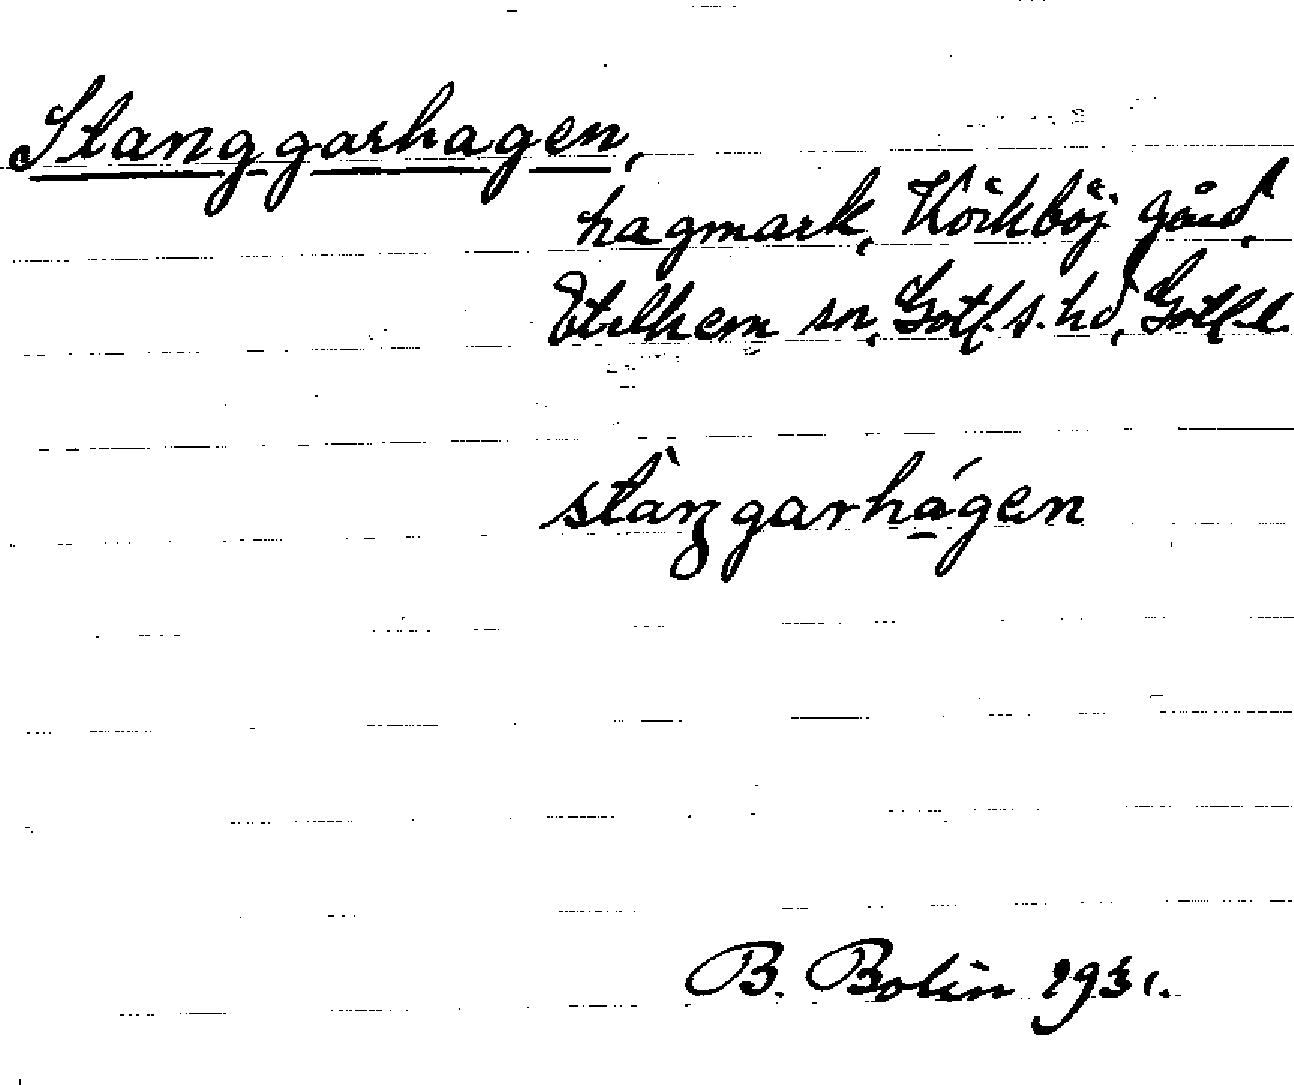 Stanggarhagen,
hagmark, Körkböj gård,
Etelhem sn, Gotl. s. hd, Gotl. l.
stàŋgarhágen
B. Bolin 1931.